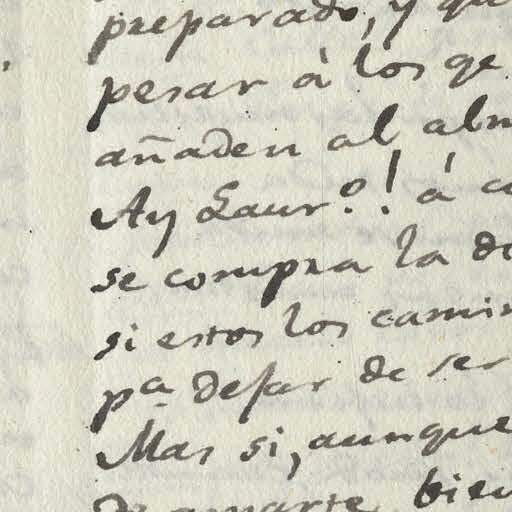 preparado, y qu
pesar à los qe
añaden al alm
Ay Laur.º! á c
se compra la di
si estos los camin
pª dejar de ser
Mas si, aunque
bien